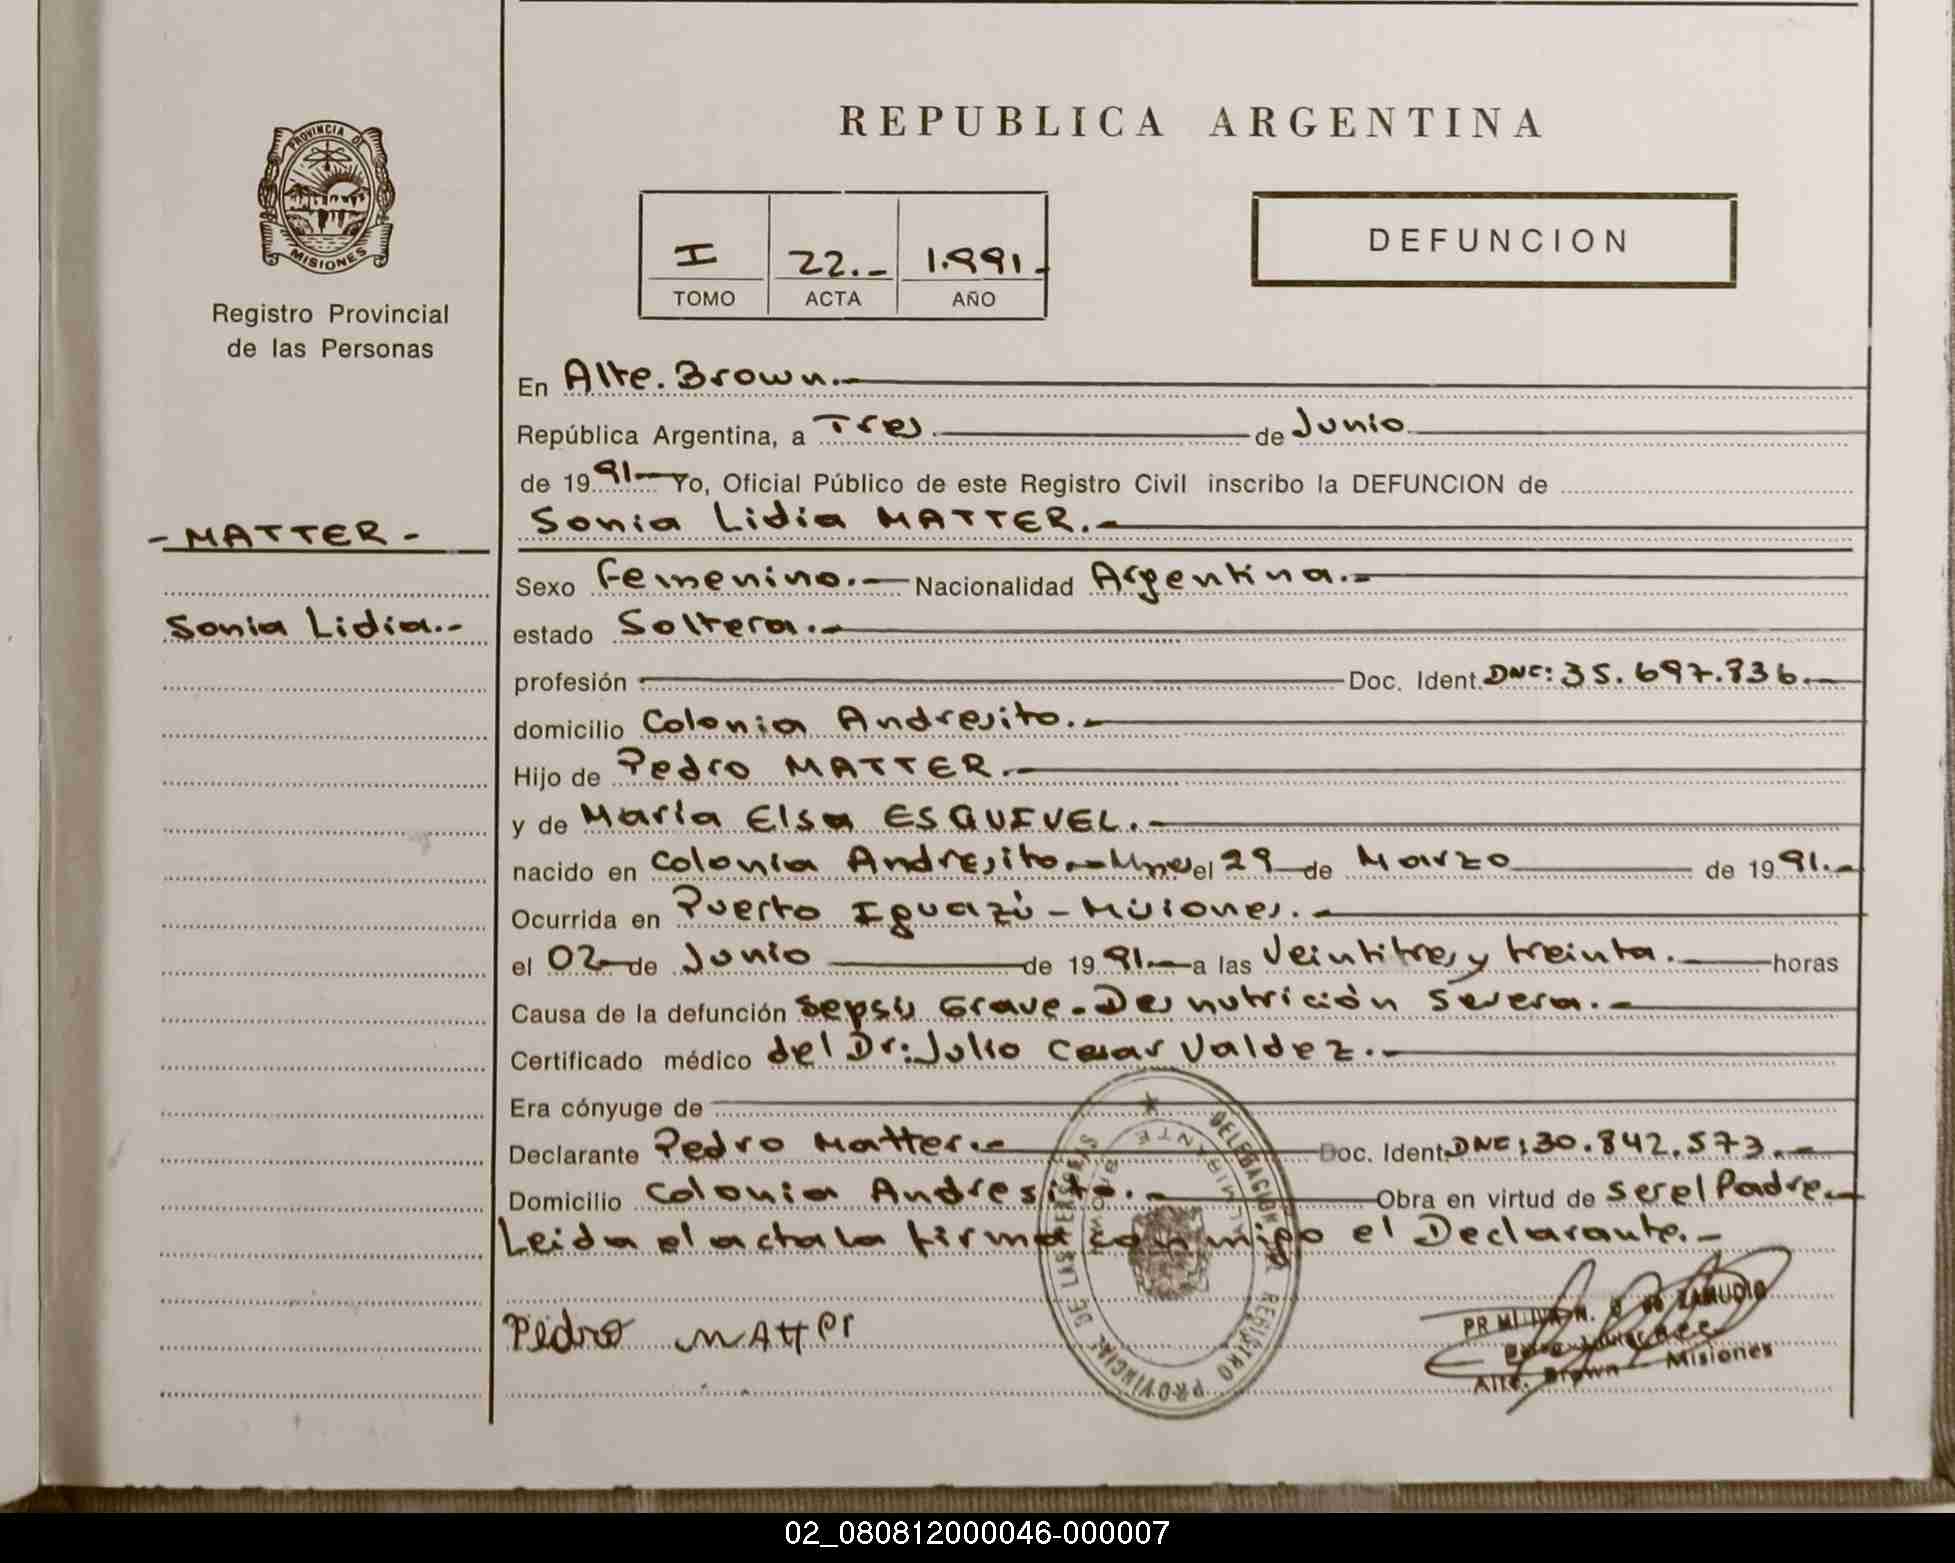 PROVINCIA DE
MISIONES
Registro Provincial
de las Personas
- MATTER -
Sonia Lidia.-
REPUBLICA ARGENTINA
I 22.- 1.991.-
TOMO ACTA AÑO
DEFUNCION
En Alte. Brown.-
República Argentina, a Tres de Junio
de 1991.- Yo, Oficial Público de este Registro Civil inscribo la DEFUNCION de
Sonia Lidia MATTER.-
Sexo Femenino.- Nacionalidad Argentina.-
estado Soltera.-
profesión Doc. Ident. DNI: 35.697.836.-
domicilio Colonia Andresito.-
Hijo de Pedro MATTER.-
y de María Elsa ESQUIVEL.-
nacido en Colonia Andresito.- Mnes el 29 de Marzo de 1991.-
Ocurrida en Puerto Iguazú - Misiones.-
el 02 de Junio de 1991.- a las Veintitres y treinta.- horas
Causa de la defunción Sepsis Grave. Desnutrición Severa.-
Certificado médico del Dr: Julio Cesar Valdez.-
Era cónyuge de
Declarante Pedro Matter.- Doc. Ident. DNI: 30.842.573.-
Domicilio Colonia Andresito.- Obra en virtud de ser el Padre.-
Leida el acta la firma conmigo el Declarante.-
Pedro Matter
DELEGACION REGISTRO PROVINCIAL DE LAS PERSONAS
ALMIRANTE BROWN
ZAMUDIO
Alte. Brown - Misiones
02_080812000046-000007